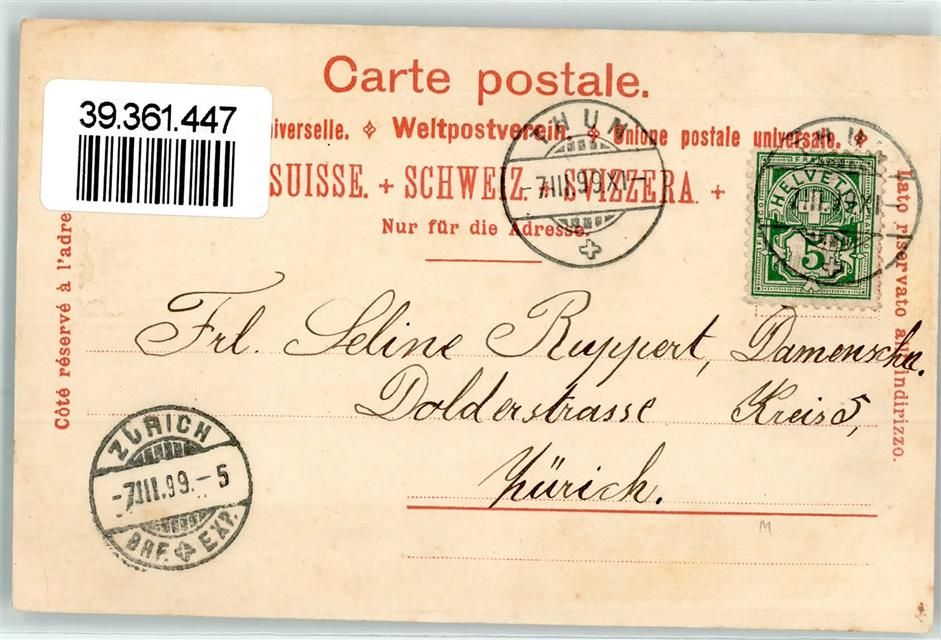 Carte postale.
39.361.447
iverselle. Weltpostverein. Unione postale universale.
SUISSE. + SCHWEIZ. + SVIZZERA. +
Nur für die Adresse.
Côté réservé à l'adre
Lato riservato all'indirizzo.
THUN
-7.III.99.XI-
HELVETIA
5
Frl. Seline Ruppert, Damenschn.
Dolderstrasse Kreis 5,
Zürich.
ZÜRICH
-7.III.99.-5
BRF. EXP.
M